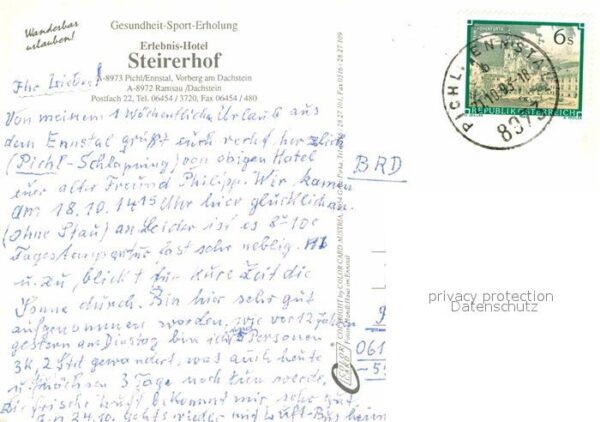 Wanderbar
urlauben!
Gesundheit-Sport-Erholung
Erlebnis-Hotel
Steirerhof
A-8973 Pichl/Ennstal, Vorberg am Dachstein
A-8972 Ramsau/Dachstein
Postfach 22, Tel. 06454 / 3720, Fax 06454 / 480
Ihr Lieben!
Von meinem 1 wöchentliche Urlaub aus
dem Ennstal grüßt euch recht herzlich
(Pichl-Schlapning) von obigen Hotel
euer alter Freund Philipp. Wir kamen
am 18.10. 14 15 Uhr hier glücklich an.
(ohne Stau) an Leider ist es 8-10c
Tagestemperatur fast sehr neblig. Ab
u. zu, blickt für kurze Zeit die
Sonne durch. Bin hier sehr gut
aufgenommen worden, wie vor 12 Jahren
gestern am Dienstag bin ich 3 Personen
2 Std gewandert, was auch heute
u. nächsten 3 Tage noch tun werde.
Die frische Luft bekommt mir sehr gut.
Am 24.10. gehts wieder mit Luft-Bus heim
BRD
061
-5
6 S
REPUBLIK ÖSTERREICH
PICHL, ENNSTAL
10.95-18
8973
COPYRIGHT by COLOR CARD AUSTRIA
privacy protection
Datenschutz